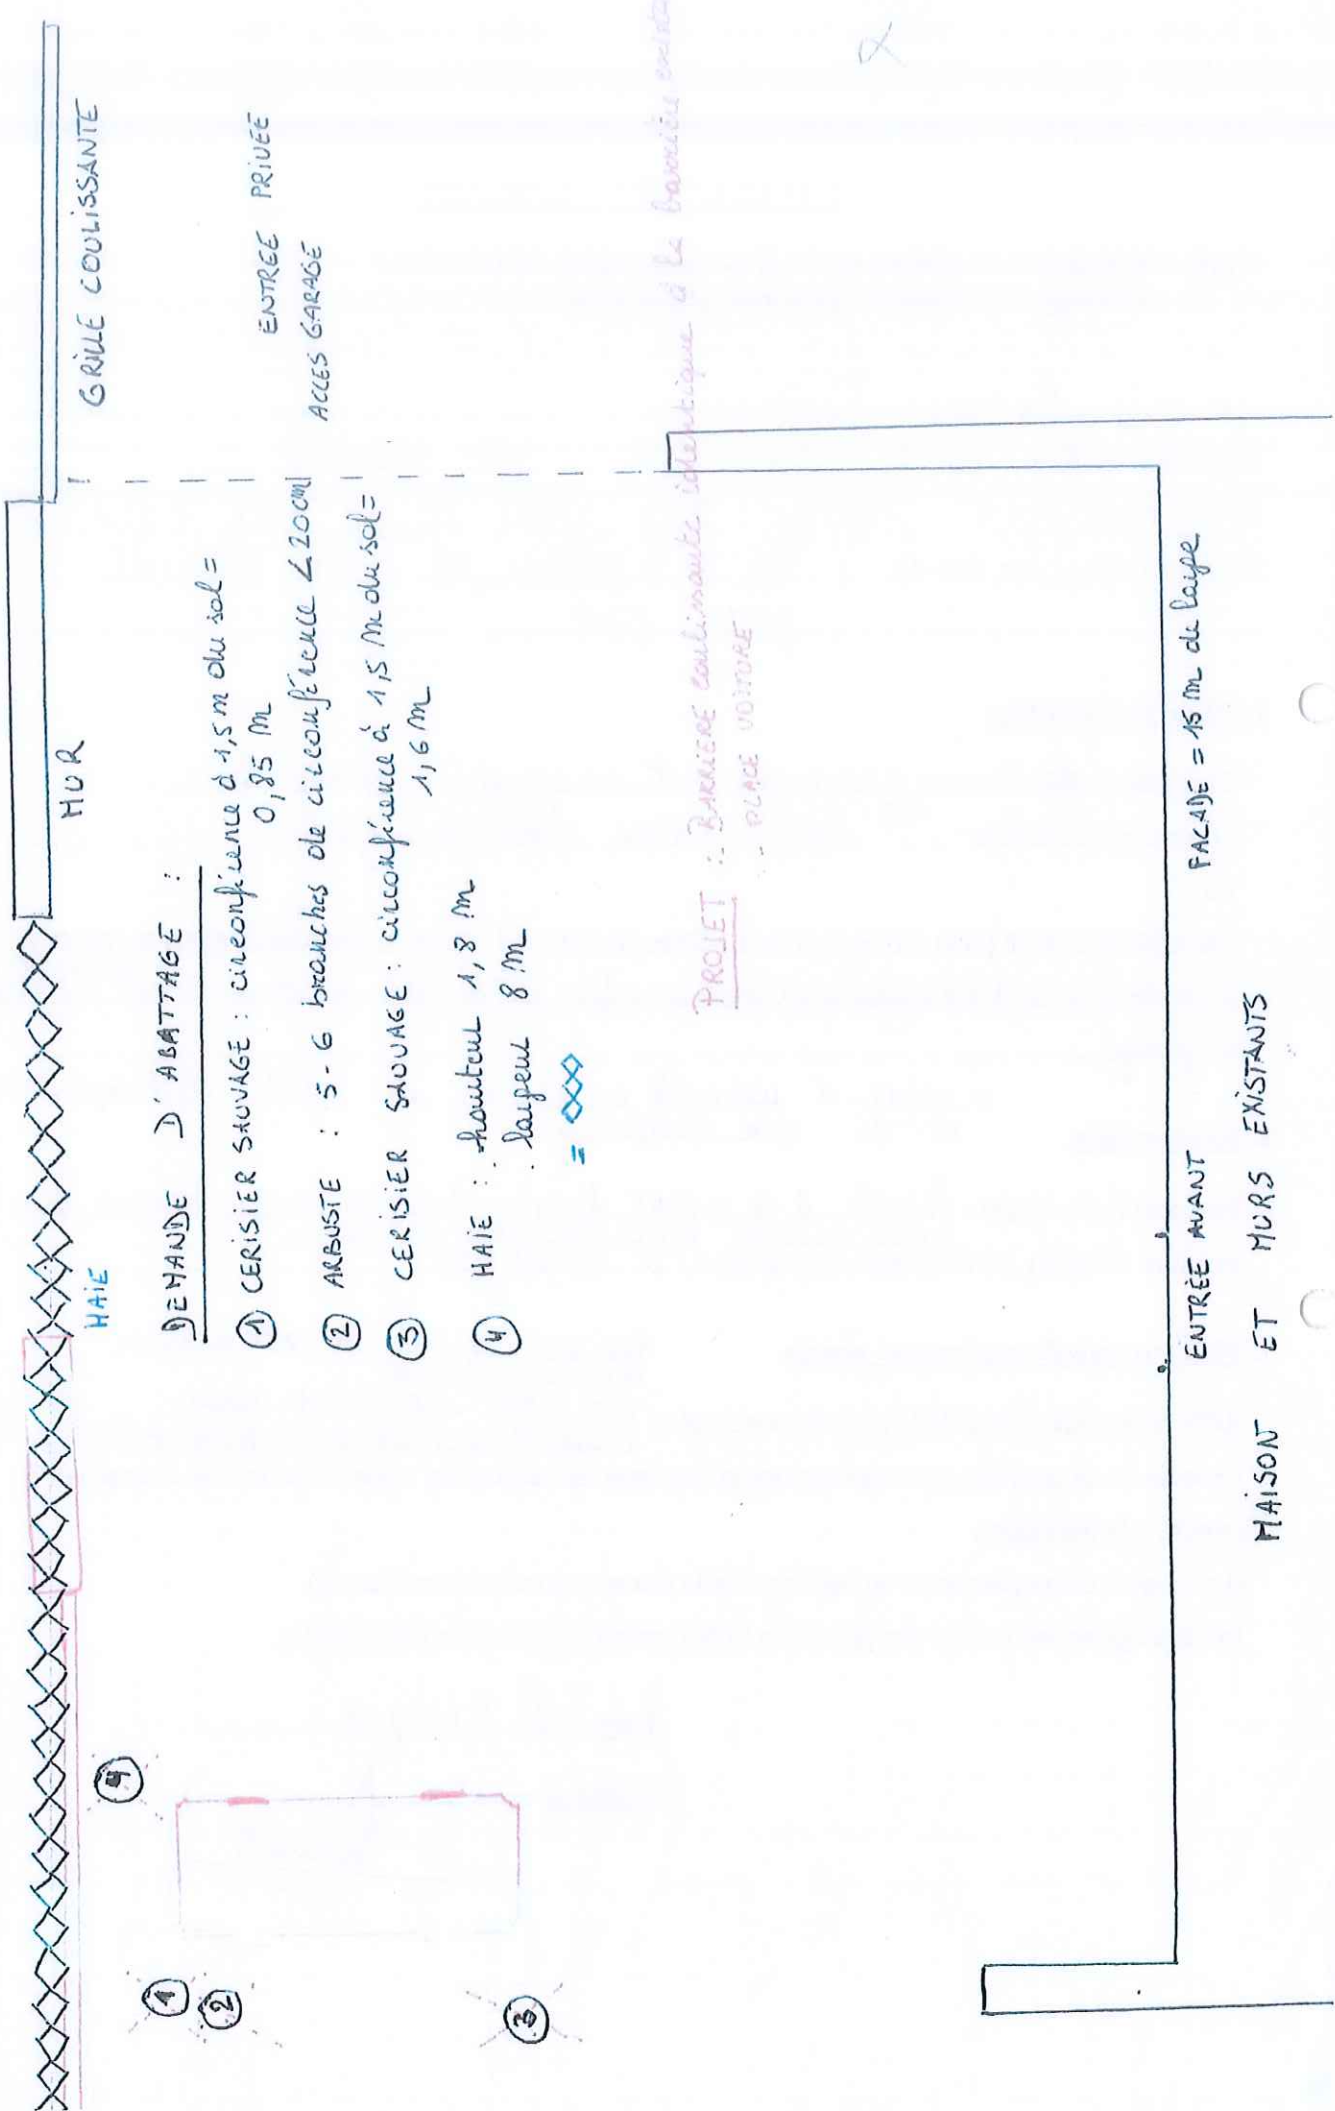 GRILLE COULISSANTE
ENTREE PRIVEE
ACCES GARAGE
MUR
HAIE
DEMANDE D'ABATTAGE :
① CERISIER SAUVAGE : circonférence à 1,5 m du sol =
0,85 m
② ARBUSTE : 5-6 branches de circonférence < 20 cm
③ CERISIER SAUVAGE : circonférence à 1,5 m du sol =
1,6 m
④ HAIE : . hauteur 1,8 m
. largeur 8 m
=
PROJET : - BARRIERE coulissante identique à la barrière
- PLACE VOITURE
④
①
②
③
FACADE = 15 m de large
ENTRÈE AVANT
MAISON ET MURS EXISTANTS